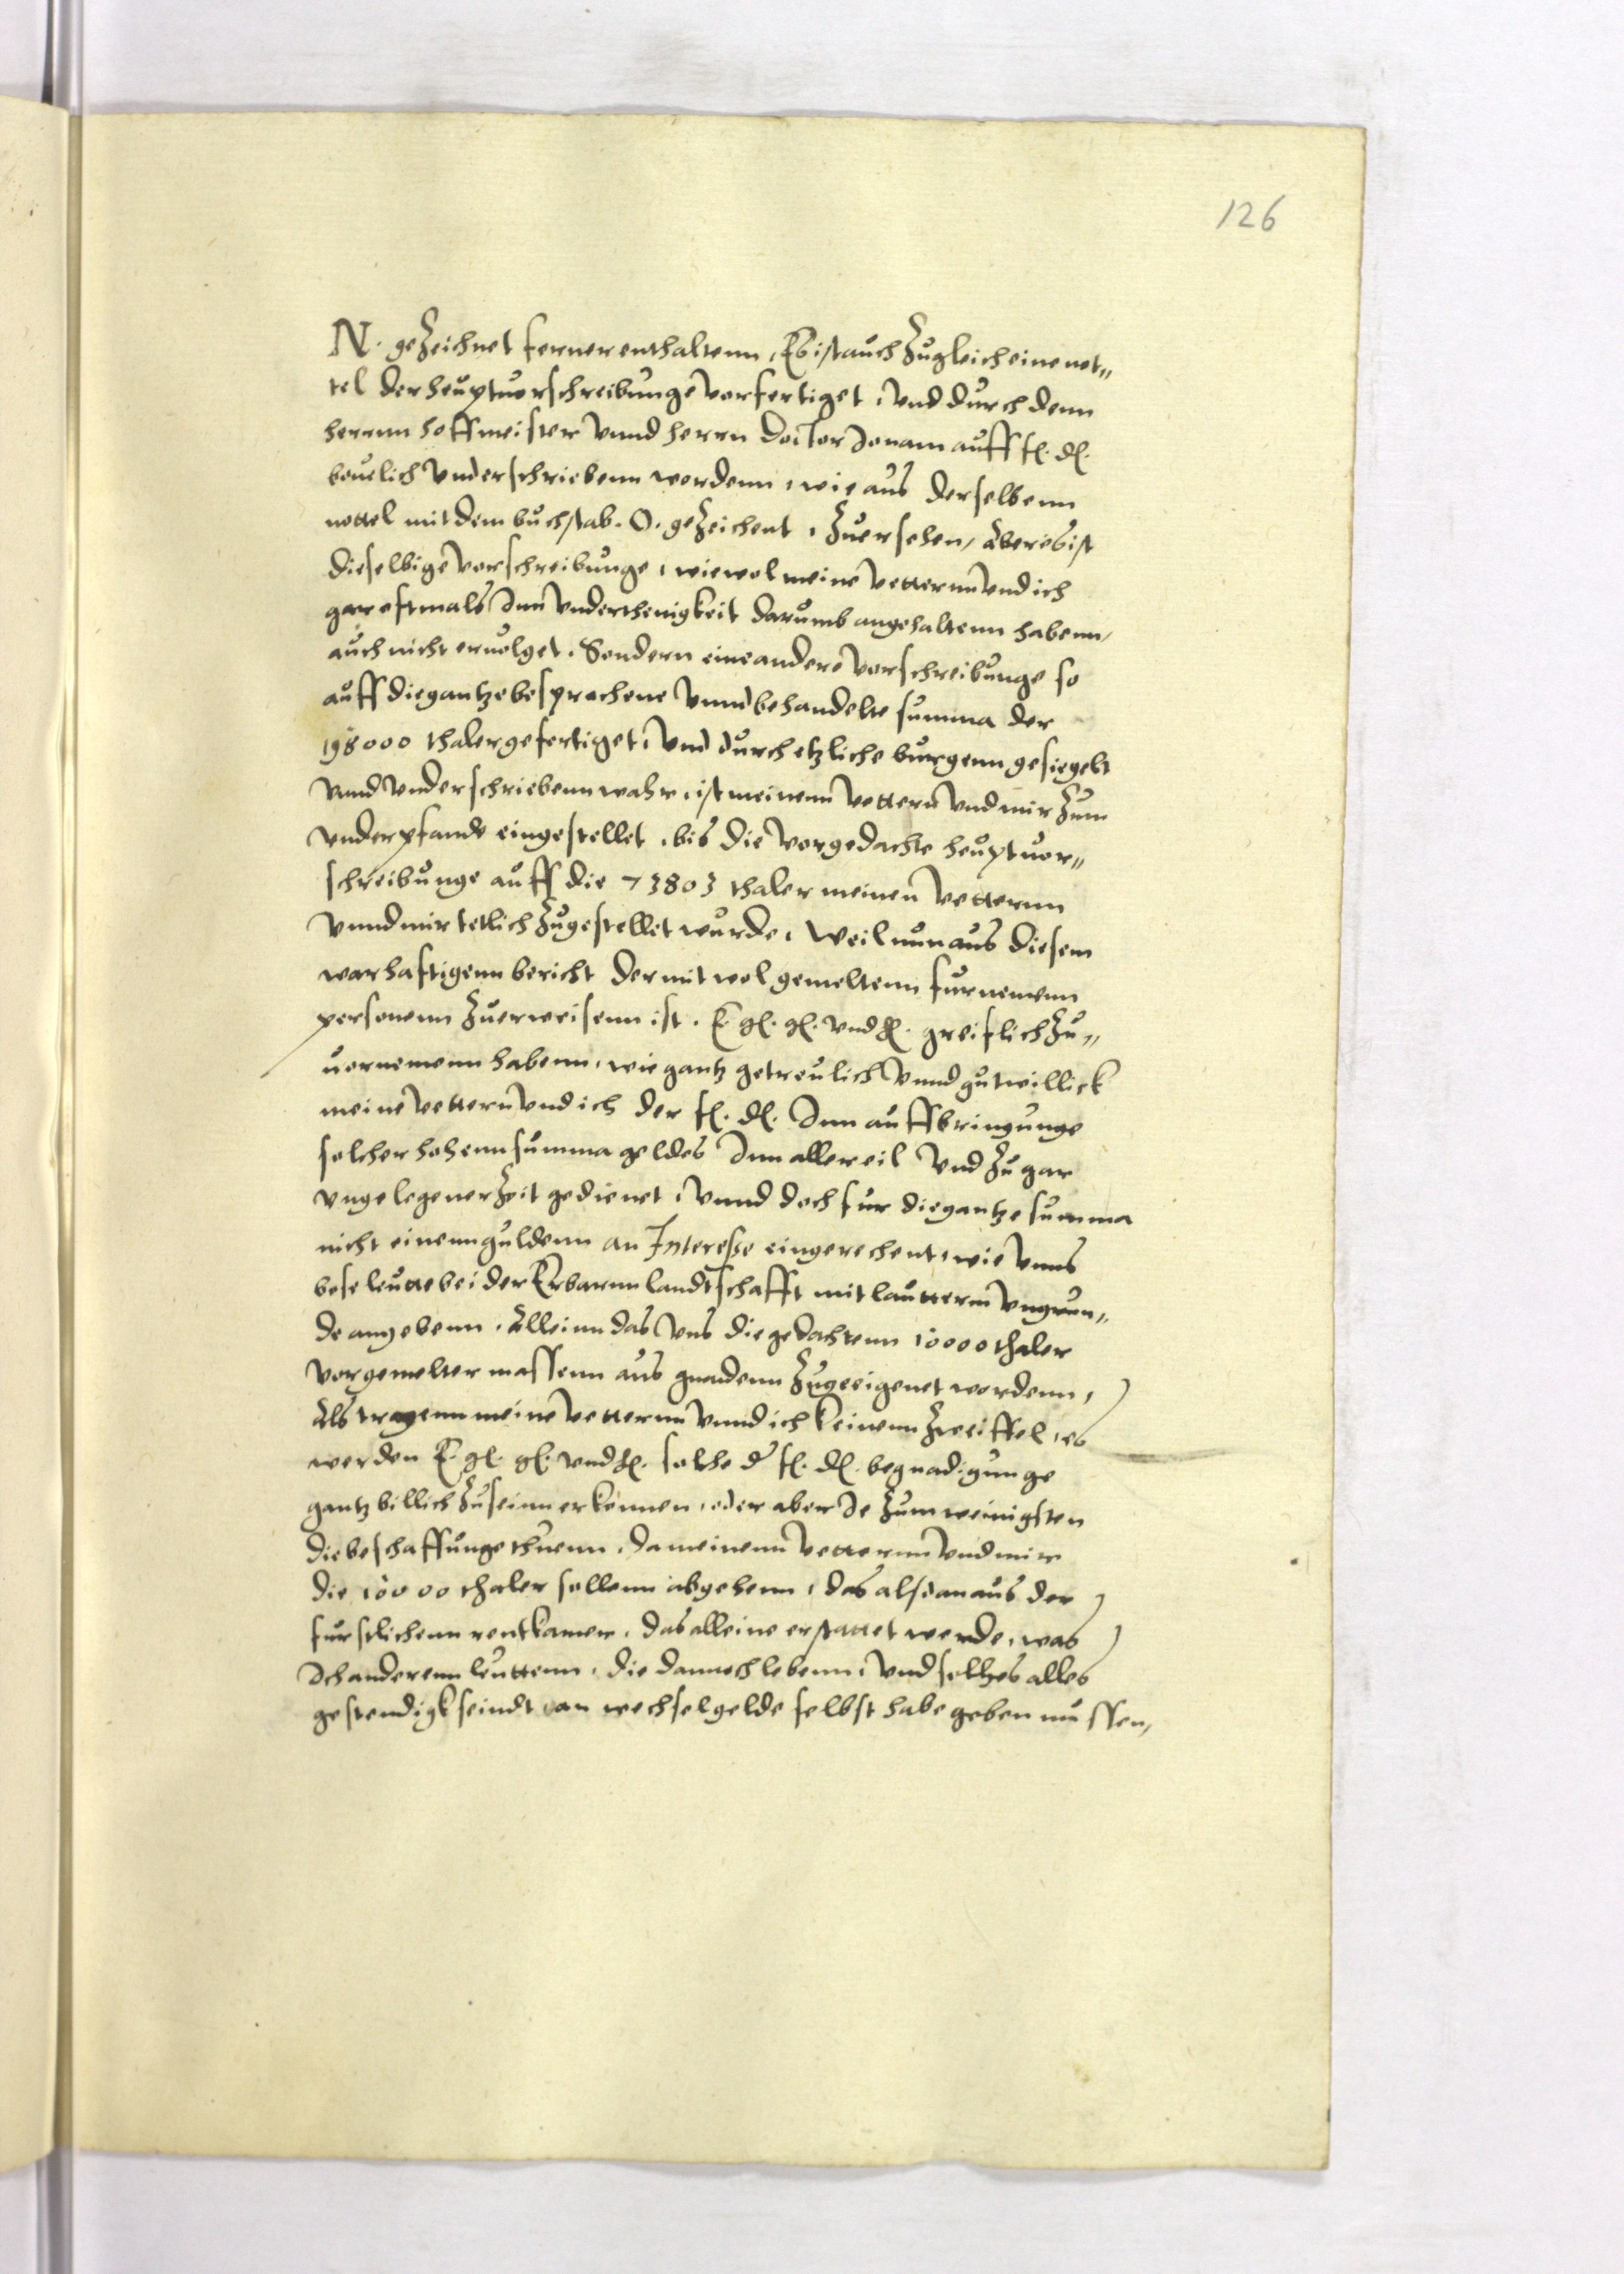 126
N. gezeichnet ferner enthaltenn, Es ist auch zugleich eine not„
tel der heuptuorschreibunge vorfertiget, vnd durch denn
herrnn hoffmeister vnnd herrn doctor Jonam auff f. d.
beuelich vnderschriebenn wordenn, wie aus derselbenn
nottel mit dem buchstab. O. gezeichent, zuersehen, Aber es ist
dieselbige vorschreibunge, wiewol meine vetternn vnd ich
gar oftmals Inn vnderthenigkeit darumb angehaltenn habenn,
auch nicht eruolget. Sondern eine andere vorschreibunge so
auff die gantze besprochene vnnd behandelte summa der
198000 thaler gefertiget, vnd durch etzliche burgenn gesiegelt
vnnd vnderschriebenn wahr, ist meinenn vettern vnd mir zum
vnderpfande eingestellet, bis die vorgedachte heuptuor„
schreibunge auff die 73803 thaler meinen vetternn
vnnd mir tetlich zugestellet wurde, Weil nun aus diesem
warhaftigenn bericht der mit wolgemeltenn furnemenn
personenn zuerweisenn ist. E. gl. gl. vnd h. greiflich zu„
uornemenn habenn, wie gantz getreulich vnnd gutwillick
meine vettern vnd ich der f. d. Inn auffbringunge
solcher hohenn summa geldes Inn aller eil vnd zu gar
vngelegener zeit gedienet, vnnd doch fur die gantze summa
nicht einenn guldenn an Interesse eingerechent, wie vnns
bose leutte bei der Erbarnn landtschafft mit lautterm vngrun„
de angebenn, Alleinn das vns die gedachtenn 10000 thaler
vorgemelter massenn aus gnadenn zugeeigenet wordenn,
Als tragenn meine vetternn vnnd ich keinenn zweiffel, es
werden E. gl. gl. vnd h. solche der f. d. begnadigunge
gantz billich zu seinn erkennen, oder aber Je zum weinigsten
die beschaffunge thuenn, da meinenn vetternn vnd mir
die 10000 thaler sollenn abgehenn, das alsdan aus der
furstlichenn rentkamer, das alleine erstattet werde, was
Ich anderenn leuttenn, die dannoch lebenn, vnd solches alles
gestendigk seindt, an wechselgelde selbst habe geben mussen,